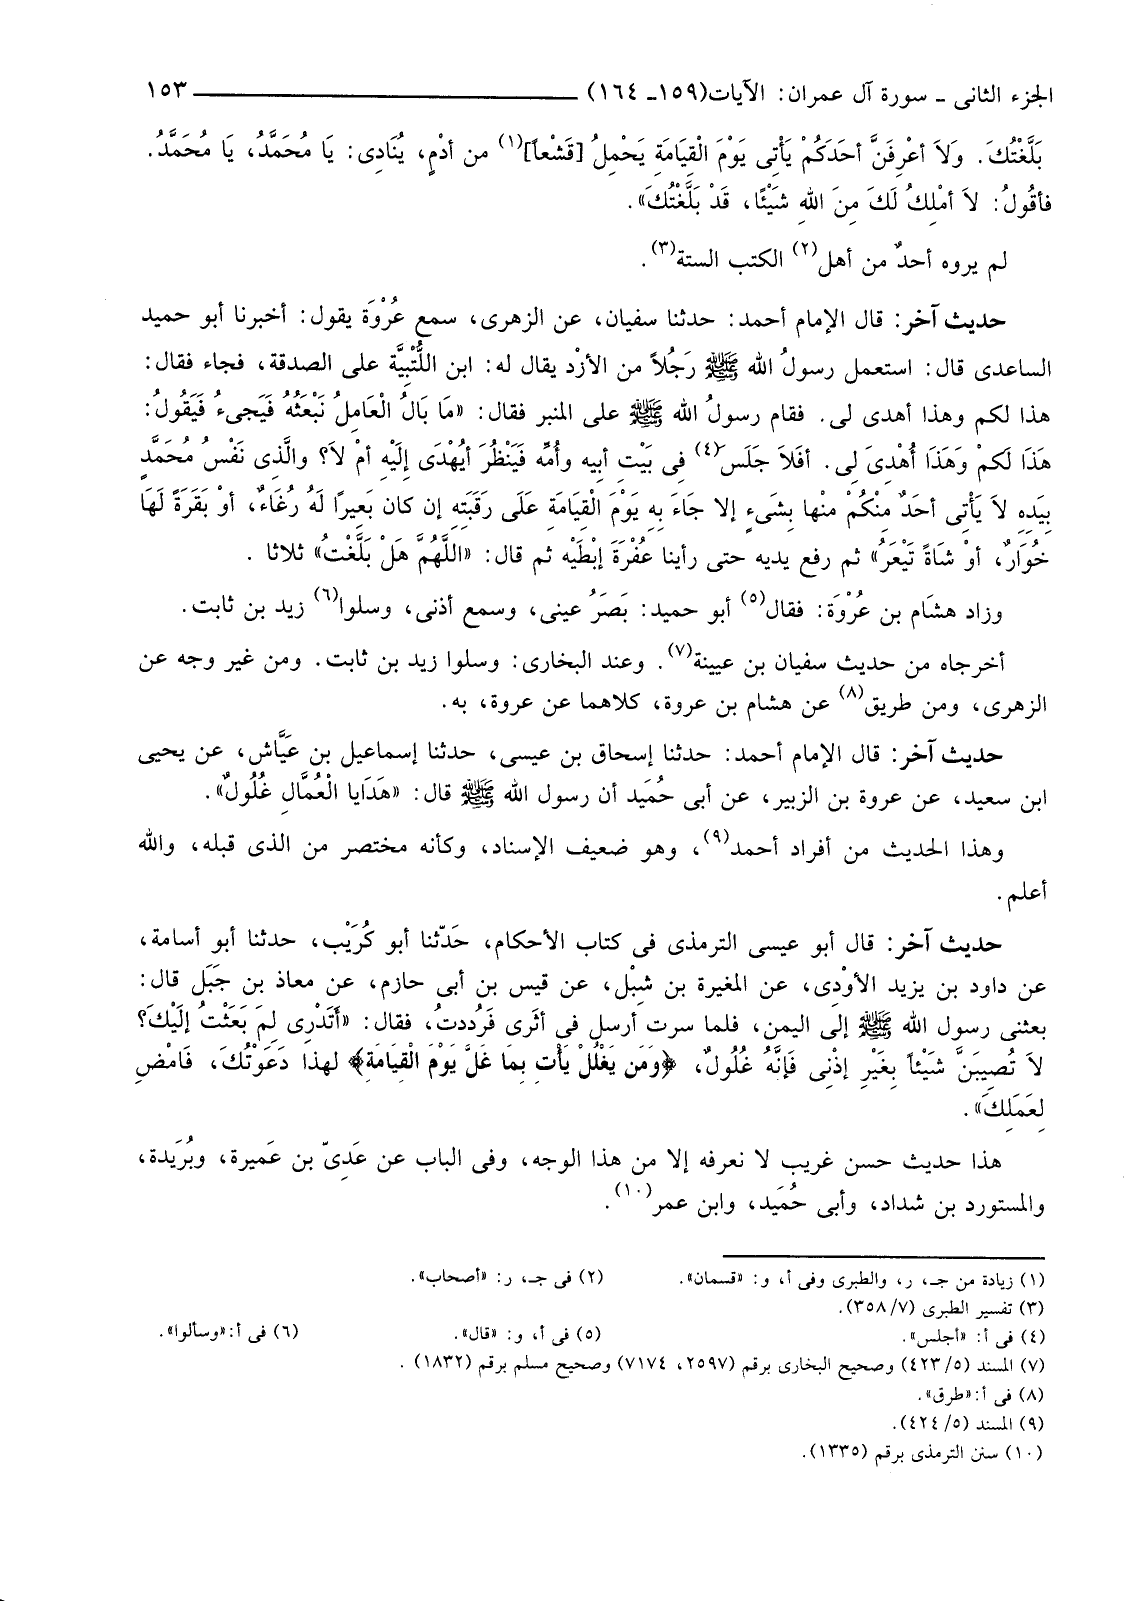 الجزء الثانى ـ سورة آل عمران: الآيات(١٥٩ـ ١٦٤) ١٥٣
بَلَّغْتُكَ. وَلاَ أعْرِفَنَّ أحَدَكُمْ يَأْتِى يَوْمَ الْقِيَامَةِ يَحْمِلُ [قَشْعاً](١) من أدْمٍ، يُنَادِى: يَا مُحَمَّدُ، يَا مُحَمَّدُ.
فأقُولُ: لاَ أمْلِكُ لَكَ مِنَ اللهِ شَيْئًا، قَدْ بَلَّغْتُكَ».
لم يروه أحدٌ من أهل(٢) الكتب الستة(٣).
حديث آخر: قال الإمام أحمد: حدثنا سفيان، عن الزهرى، سمع عُرْوَة يقول: أخبرنا أبو حميد
الساعدى قال: استعمل رسولُ الله ﷺ رَجُلاً من الأزْد يقال له: ابن اللُّتْبِيَّة على الصدقة، فجاء فقال:
هذا لكم وهذا أهدى لى. فقام رسولُ الله ﷺ على المنبر فقال: «مَا بَالُ الْعَامِلُ نَبْعَثُهُ فَيَجىءُ فَيَقُولُ:
هَذَا لَكمْ وَهَذَا أُهْدِىَ لِى. أفَلاَ جَلَس(٤) فِى بَيْتِ أبيه وأُمِّه فَيَنْظُرَ أيُهْدَى إلَيْهِ أمْ لاَ؟ والَّذِى نَفْسُ مُحَمَّدٍ
بِيَدِهِ لاَ يَأْتِى أحَدٌ مِنْكُمْ مِنْها بِشَىءٍ إلا جَاءَ بِه يَوْمَ الْقِيَامَةِ عَلَى رَقَبَتِهِ إن كان بَعِيرًا لَهُ رُغَاءٌ، أوْ بَقَرَةً لَهَا
خُوَارٌ، أوْ شَاةً تَيْعَرُ» ثم رفع يديه حتى رأينا عُفْرَةَ إبْطَيْه ثم قال: «اللَّهُمَّ هَلْ بَلَّغْتُ» ثلاثا .
وزاد هشَام بن عُرْوَة: فقال(٥) أبو حميد: بَصَرُ عينى، وسمع أذنى، وسلوا(٦) زيد بن ثابت.
أخرجاه من حديث سفيان بن عيينة(٧). وعند البخارى: وسلوا زيد بن ثابت. ومن غير وجه عن
الزهرى، ومن طريق(٨) عن هشام بن عروة، كلاهما عن عروة، به.
حديث آخر: قال الإمام أحمد: حدثنا إسحاق بن عيسى، حدثنا إسماعيل بن عَيَّاش، عن يحيى
ابن سعيد، عن عروة بن الزبير، عن أبى حُمَيد أن رسول الله ﷺ قال: «هَدَايا الْعُمَّال غُلُولٌ».
وهذا الحديث من أفراد أحمد(٩)، وهو ضعيف الإسناد، وكأنه مختصر من الذى قبله، والله
أعلم.
حديث آخر: قال أبو عيسى الترمذى فى كتاب الأحكام، حَدّثنا أبو كُرَيْب، حدثنا أبو أسامة،
عن داود بن يزيد الأوْدِى، عن المغيرة بن شِبْل، عن قيس بن أبى حازم، عن معاذ بن جَبَل قال:
بعثنى رسول الله ﷺ إلى اليمن، فلما سرت أرسل فى أثَرى فَرُددتُ، فقال: «أَتَدْرِى لِمَ بَعَثْتُ إلَيْكَ؟
لاَ تُصِيبَنَّ شَيْئاً بِغَيْرِ إذْنِى فَإنَّهُ غُلُولٌ، ﴿وَمَن يَغْلُلْ يَأْتِ بِمَا غَلَّ يَوْمَ الْقِيَامَةِ﴾ لهذا دَعَوْتُكَ، فَامْضِ
لِعَمَلِكَ».
هذا حديث حسن غريب لا نعرفه إلا من هذا الوجه، وفى الباب عن عَدِىّ بن عَميرة، وبُرَيدة،
والمستورد بن شداد، وأبى حُمَيد، وابن عمر(١٠).
(١) زيادة من جـ، ر، والطبرى وفى أ، و: «قسمان». (٢) فى جـ، ر: «أصحاب».
(٣) تفسير الطبرى (٧/ ٣٥٨).
(٤) فى أ: «أجلس». (٥) فى أ، و: «قال». (٦) فى أ:«وسألوا».
(٧) المسند (٥/ ٤٢٣) وصحيح البخارى برقم (٢٥٩٧، ٧١٧٤) وصحيح مسلم برقم (١٨٣٢) .
(٨) فى أ:«طرق».
(٩) المسند (٥/ ٤٢٤).
(١٠) سنن الترمذى برقم (١٣٣٥).